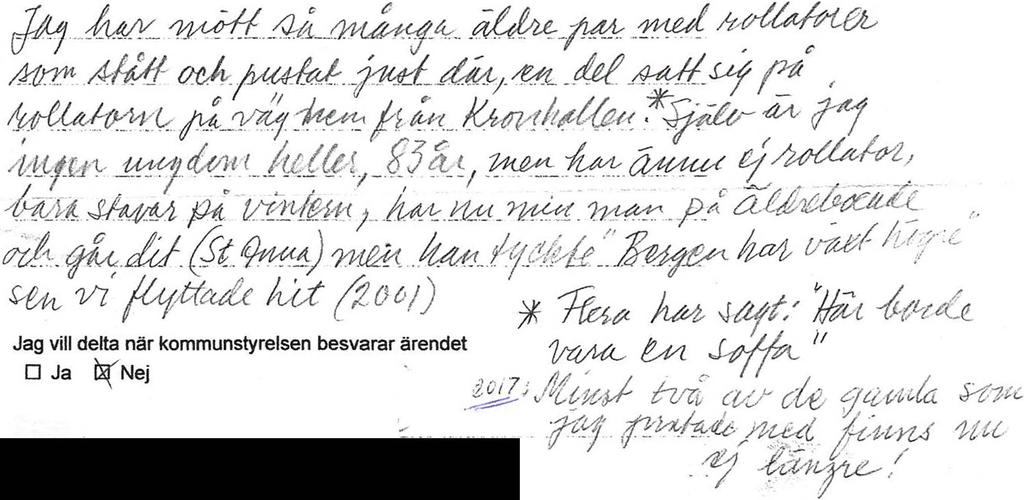 Jag har mött så många äldre par med rollatorer
som stått och pustat just där, en del satt sig på
rollatorn på väg hem från Kronhallen.* Själv är jag
ingen ungdom heller, 83 år, men har ännu ej rollator,
bara stavar på vintern, har nu min man på äldreboende
och går dit (St Anna) men han tyckte "Bergen har växt högre"
sen vi flyttade hit (2001)
* Flera har sagt: "Här borde
vara en soffa"
Jag vill delta när kommunstyrelsen besvarar ärendet
☐ Ja ☒ Nej
2017: Minst två av de gamla som
jag pratade med finns nu
ej längre!